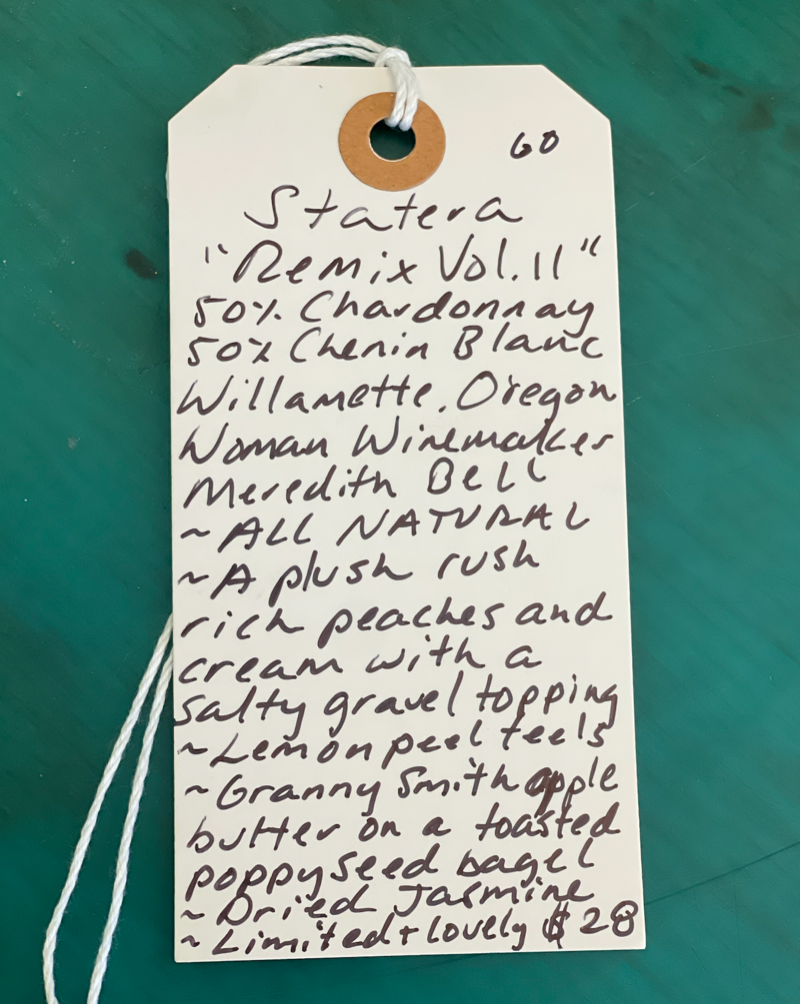 60
Statera
"Remix Vol. 11"
50% Chardonnay
50% Chenin Blanc
Willamette, Oregon
Woman Winemaker
Meredith Bell
~ ALL NATURAL
~ A plush rush
rich peaches and
cream with a
salty gravel topping
~ Lemon peel feels
~ Granny Smith apple
butter on a toasted
poppyseed bagel
~ Dried Jasmine
~ Limited + lovely $28